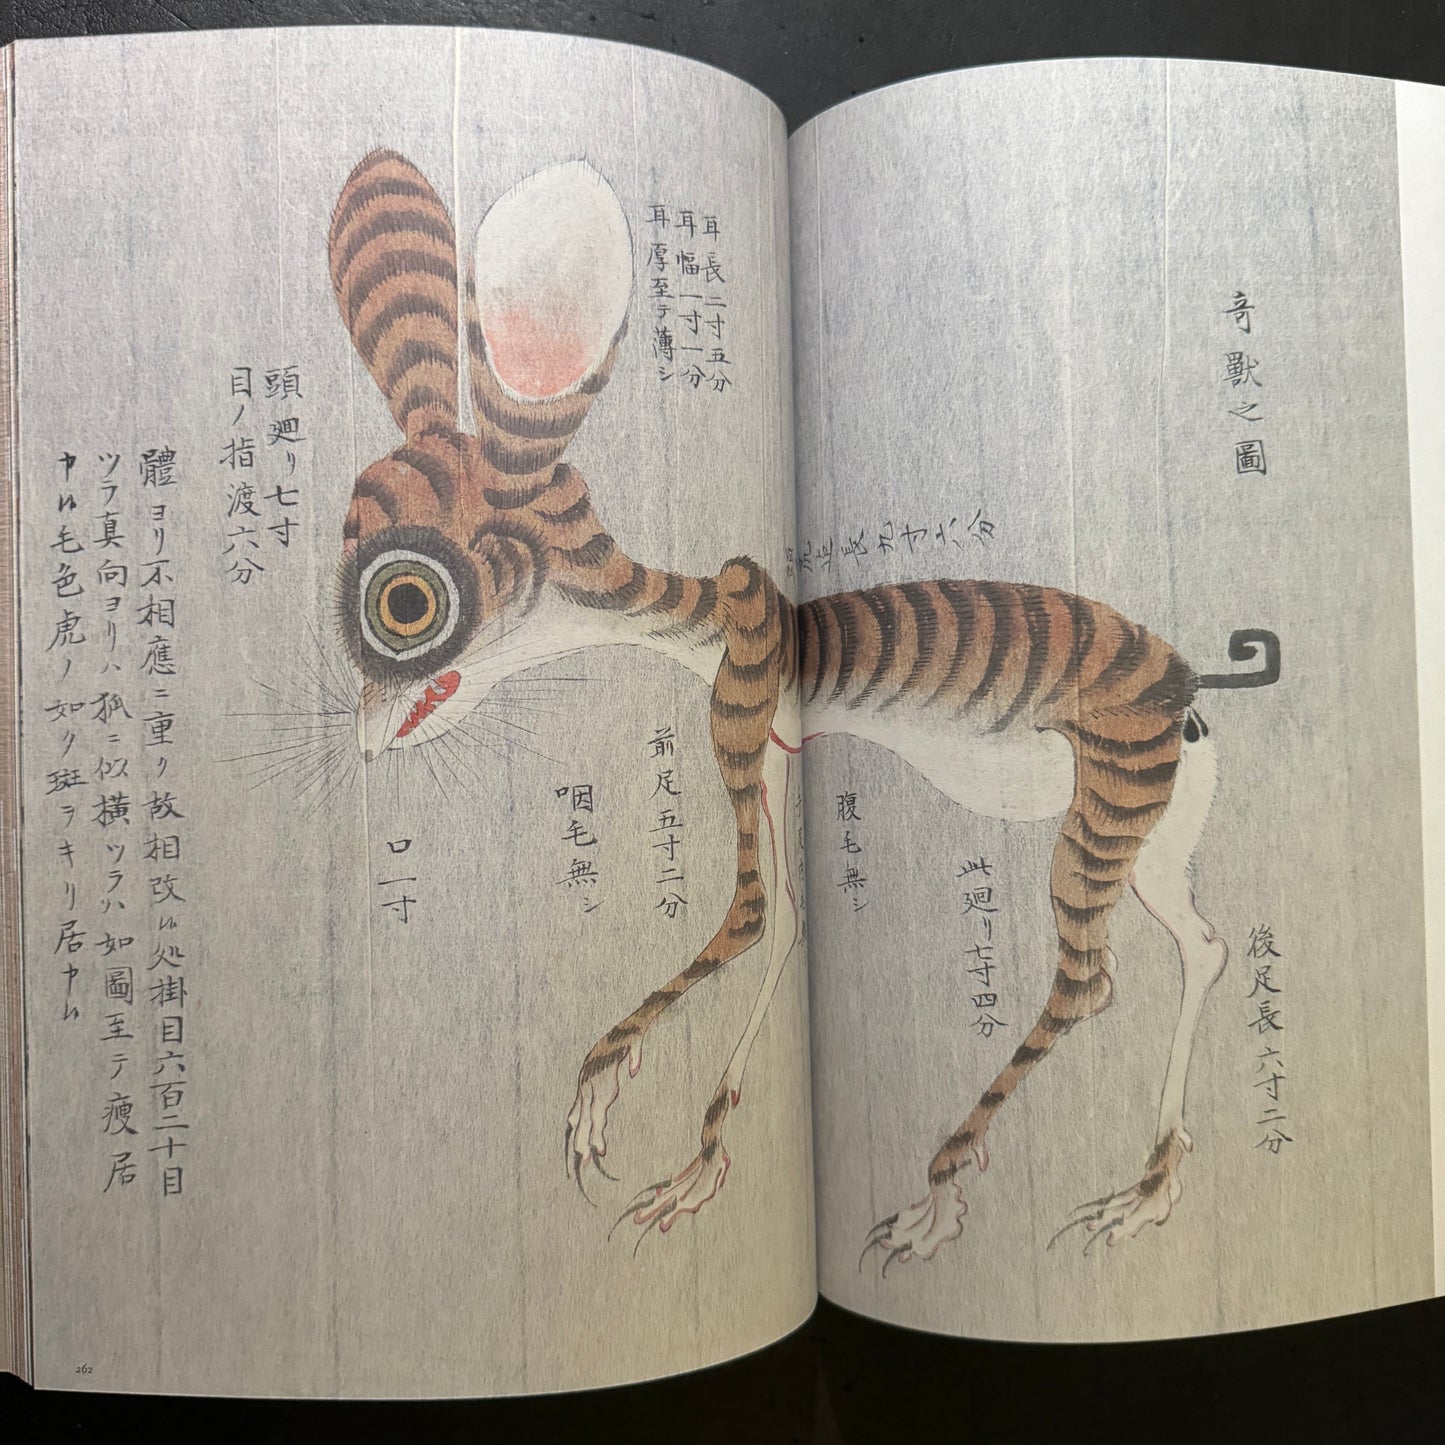 奇獸之圖
後足長六寸二分
長九寸六分
此廻リ七寸四分
腹毛無シ
耳長二寸五分
耳幅一寸一分
耳厚至テ薄シ
前足五寸二分
咽毛無シ
口一寸
頭廻リ七寸
目ノ指渡六分
體ヨリ不相應ニ重ク故相改ル処掛目六百二十目
ツラ真向ヨリハ狐ニ似横ツラハ如圖至テ痩居
申ル毛色虎ノ如ク斑ヲキリ居申ル
262